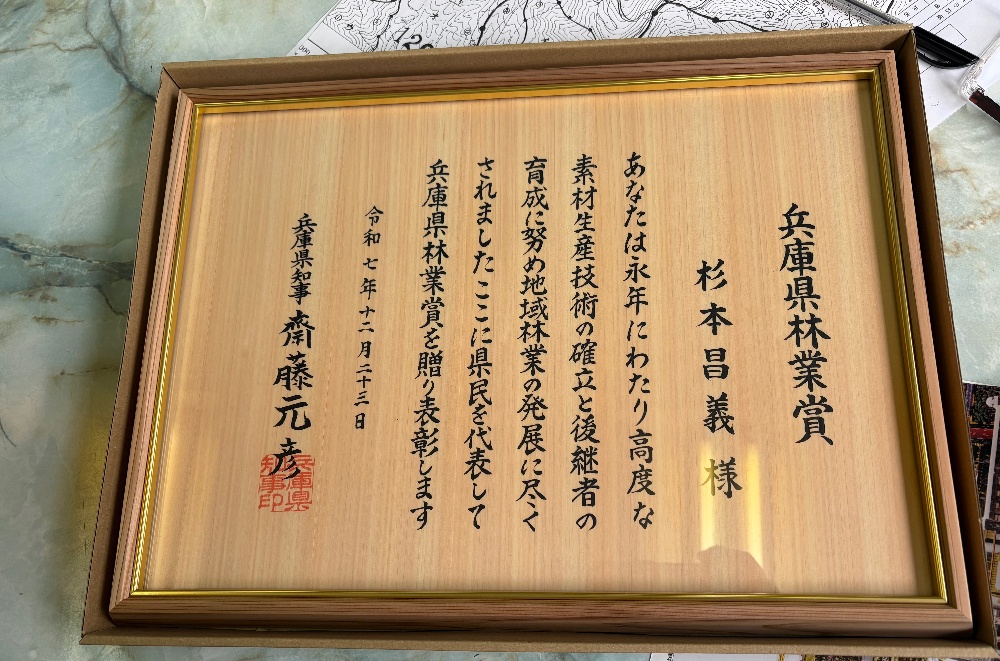 兵庫県林業賞
杉本昌義様
あなたは永年にわたり高度な
素材生産技術の確立と後継者の
育成に努め地域林業の発展に尽く
されましたここに県民を代表して
兵庫県林業賞を贈り表彰します
令和七年十二月二十三日
兵庫県知事 齋藤元彦
兵庫県
知事印